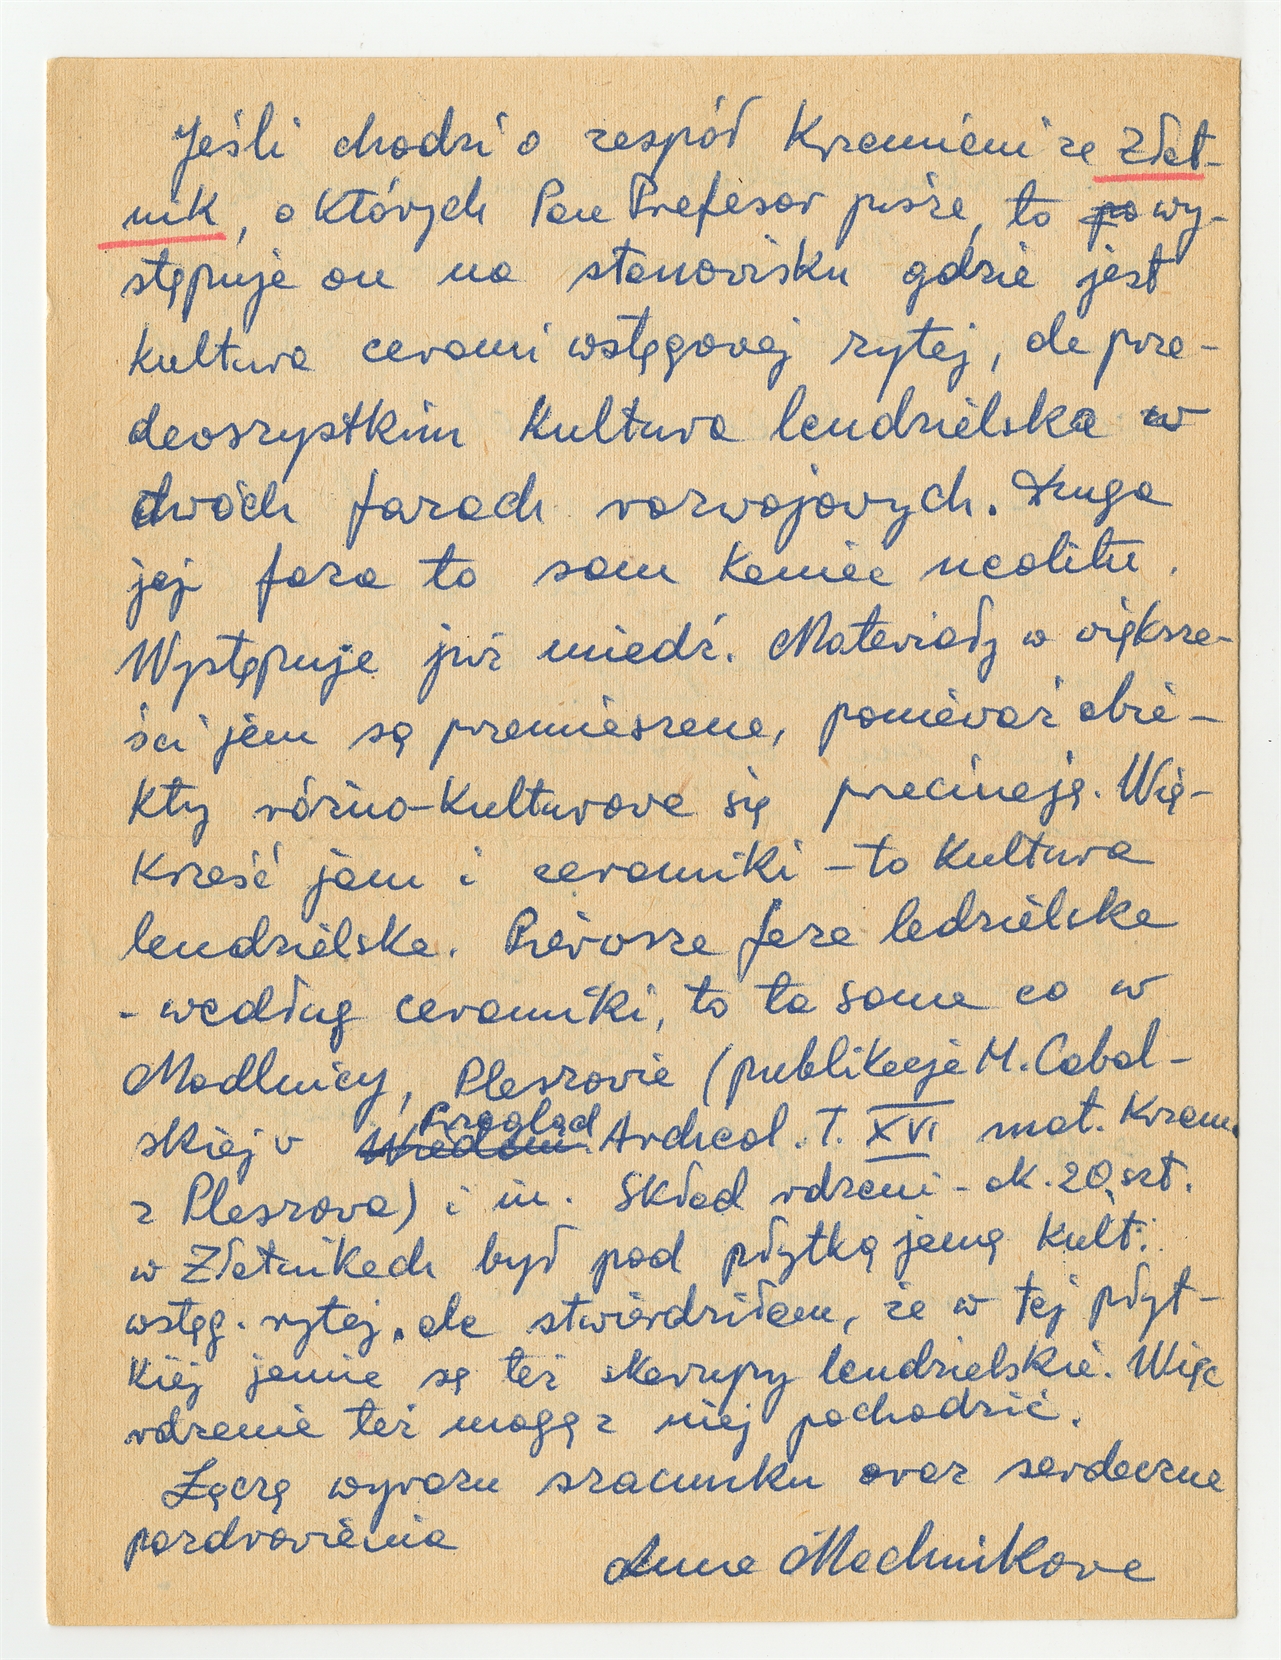 Jeśli chodzi o zespół Krzemieni ze Złot-
nik, o których Pan Profesor pisze, to po wy-
stępuje on na stanowisku gdzie jest
kultura cerami wstęgowej rytej, ale prze-
dewszystkim kultura lendzielska w
dwóch fazach rozwojowych. Druga
jej faza to sam koniec neolitu.
Występuje już miedź. Materiały w większo-
ści jam są przemieszane, ponieważ obie-
kty różno-kulturowe się przecinają. Wię-
kszość jam i ceramiki - to kultura
lendzielska. Pierwsza faza ledzielska
- według ceramiki, to ta sama co w
Modlnicy, Pleszowie (publikacje M. Cabal-
skiej w Przegląd Archeol. T. XVI mat. Krzem.
z Pleszowa) i in. Skład rdzeni - ok. 20 szt.
w Złotnikach był pod płytką jamą kult.
wstęg. rytej, ale stwierdziłam, że w tej płyt-
kiej jamie są też skorupy lendzielskie. Więc
rdzenie też mogą z niej pochodzić.
Łączę wyrazu szacunku oraz serdeczne
pozdrowienia
Anna Machnikowa